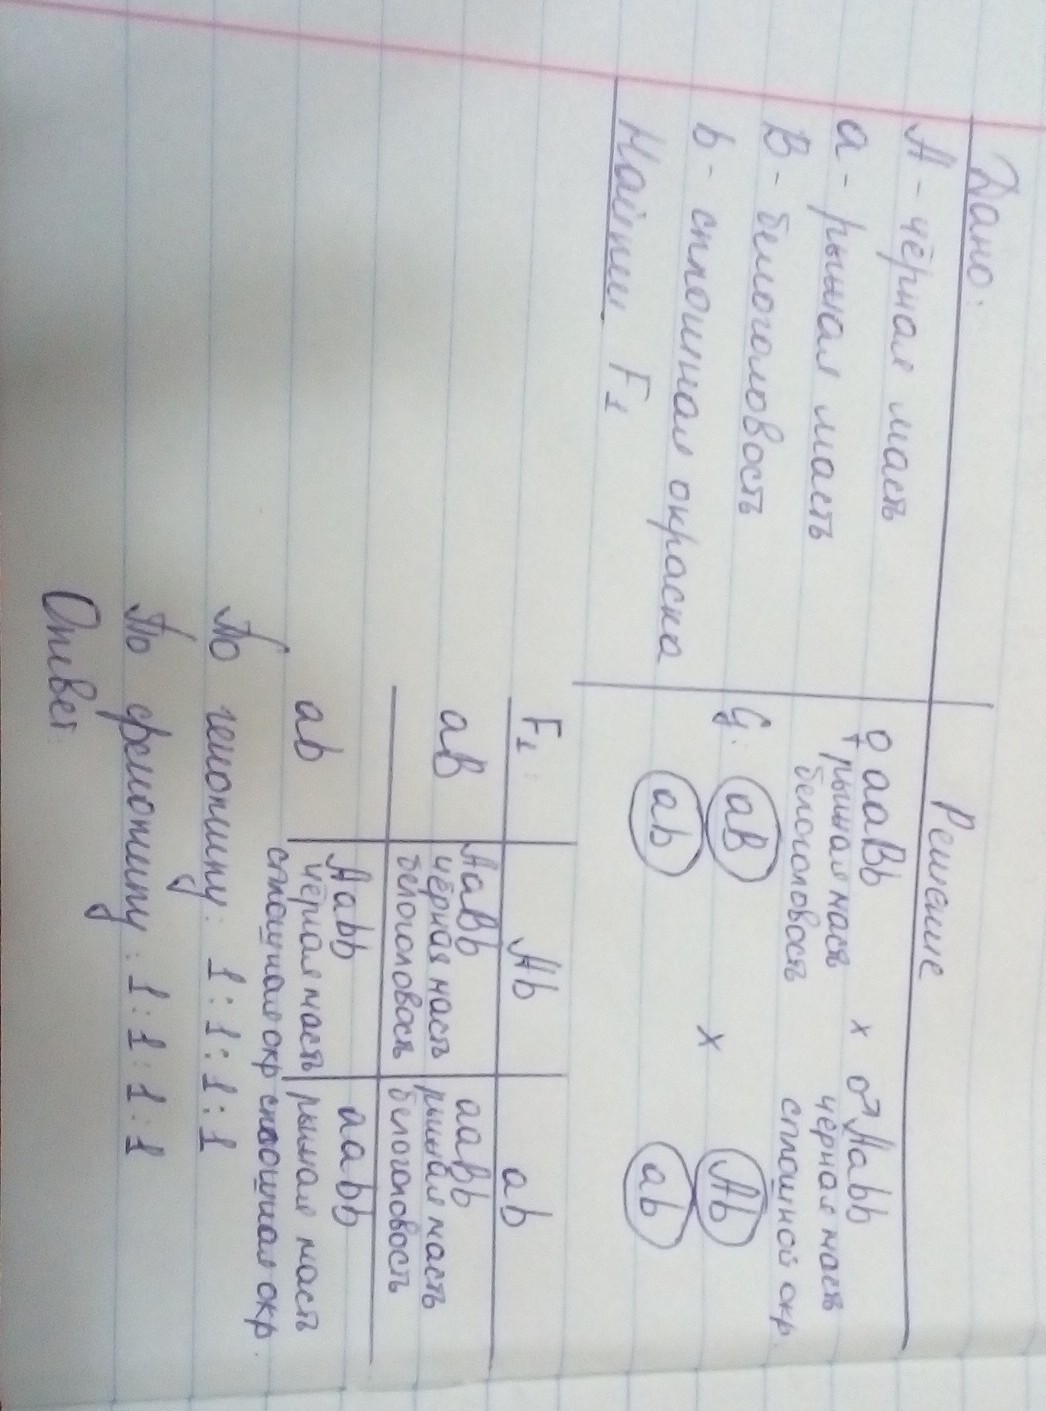 Дано:
А - чёрная масть
а - рыжая масть
В - белоголовость
b - сплошная окраска
Найти F1
Решение
♀ aaBb x ♂ Aabb
рыжая мась чёрная масть
белоголовость сплошной окр.
G: aB x Ab
ab ab
F1: Ab ab
aB AaBb aaBb
чёрная масть рыжая масть
белоголовость белоголовость
ab Aabb aabb
чёрная масть рыжая масть
сплошная окр сплошная окр.
По генотипу: 1:1:1:1
По фенотипу: 1:1:1:1
Ответ: